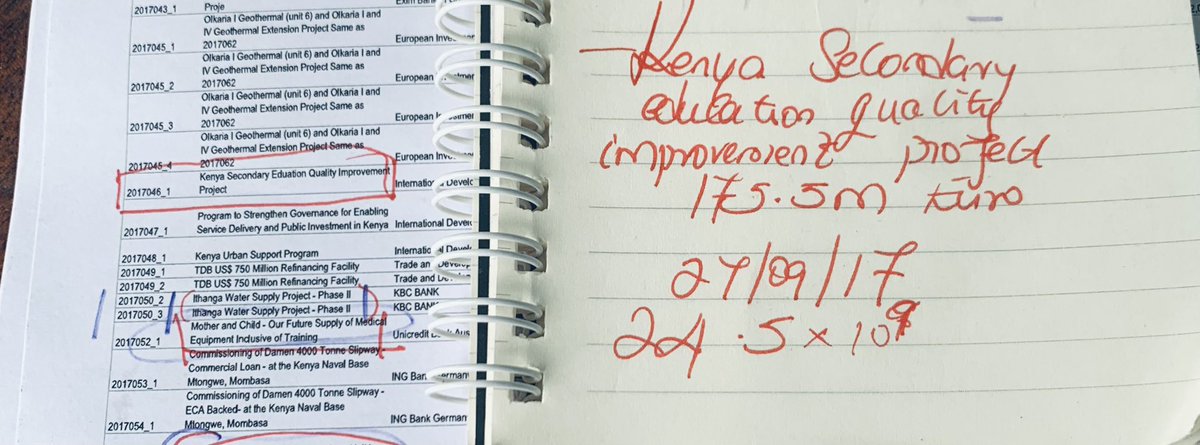 2017043_1 Proje
Olkaria I Geothermal (unit 6) and Olkaria I and
IV Geothermal Extension Project Same as
2017045_1 2017062 European Inve
Olkaria I Geothermal (unit 6) and Olkaria I and
IV Geothermal Extension Project Same as
2017045_2 2017062 European
Olkaria I Geothermal (unit 6) and Olkaria I and
IV Geothermal Extension Project Same as
2017045_3 2017062 European
Olkaria I Geothermal (unit 6) and Olkaria I and
IV Geothermal Extension Project Same as
2017045_4 2017062 European Inve
Kenya Secondary Eduation Quality Improvement
2017046_1 Project Internatio Develo
Program to Strengthen Governance for Enabling
2017047_1 Service Delivery and Public Investment in Kenya International Develo
2017048_1 Kenya Urban Support Program Internatio al Develo
2017049_1 TDB US$ 750 Million Refinancing Facility Trade an Develop
2017049_2 TDB US$ 750 Million Refinancing Facility Trade and
2017050_2 Ithanga Water Supply Project - Phase II KBC BANK
2017050_3 Ithanga Water Supply Project - Phase II KBC BANK
Mother and Child - Our Future Supply of Medical
2017052_1 Equipment Inclusive of Training Unicredit Aus
Commissioning of Damen 4000 Tonne Slipway
Commercial Loan - at the Kenya Naval Base
2017053_1 Mtongwe, Mombasa ING Ban German
Commissioning of Damen 4000 Tonne Slipway -
ECA Backed- at the Kenya Naval Base
2017054_1 Mtongwe, Mombasa ING Bank German
- Kenya Secondary
education quality
improvement project
175.5m Euro
27/09/17
24.5 x 10⁹